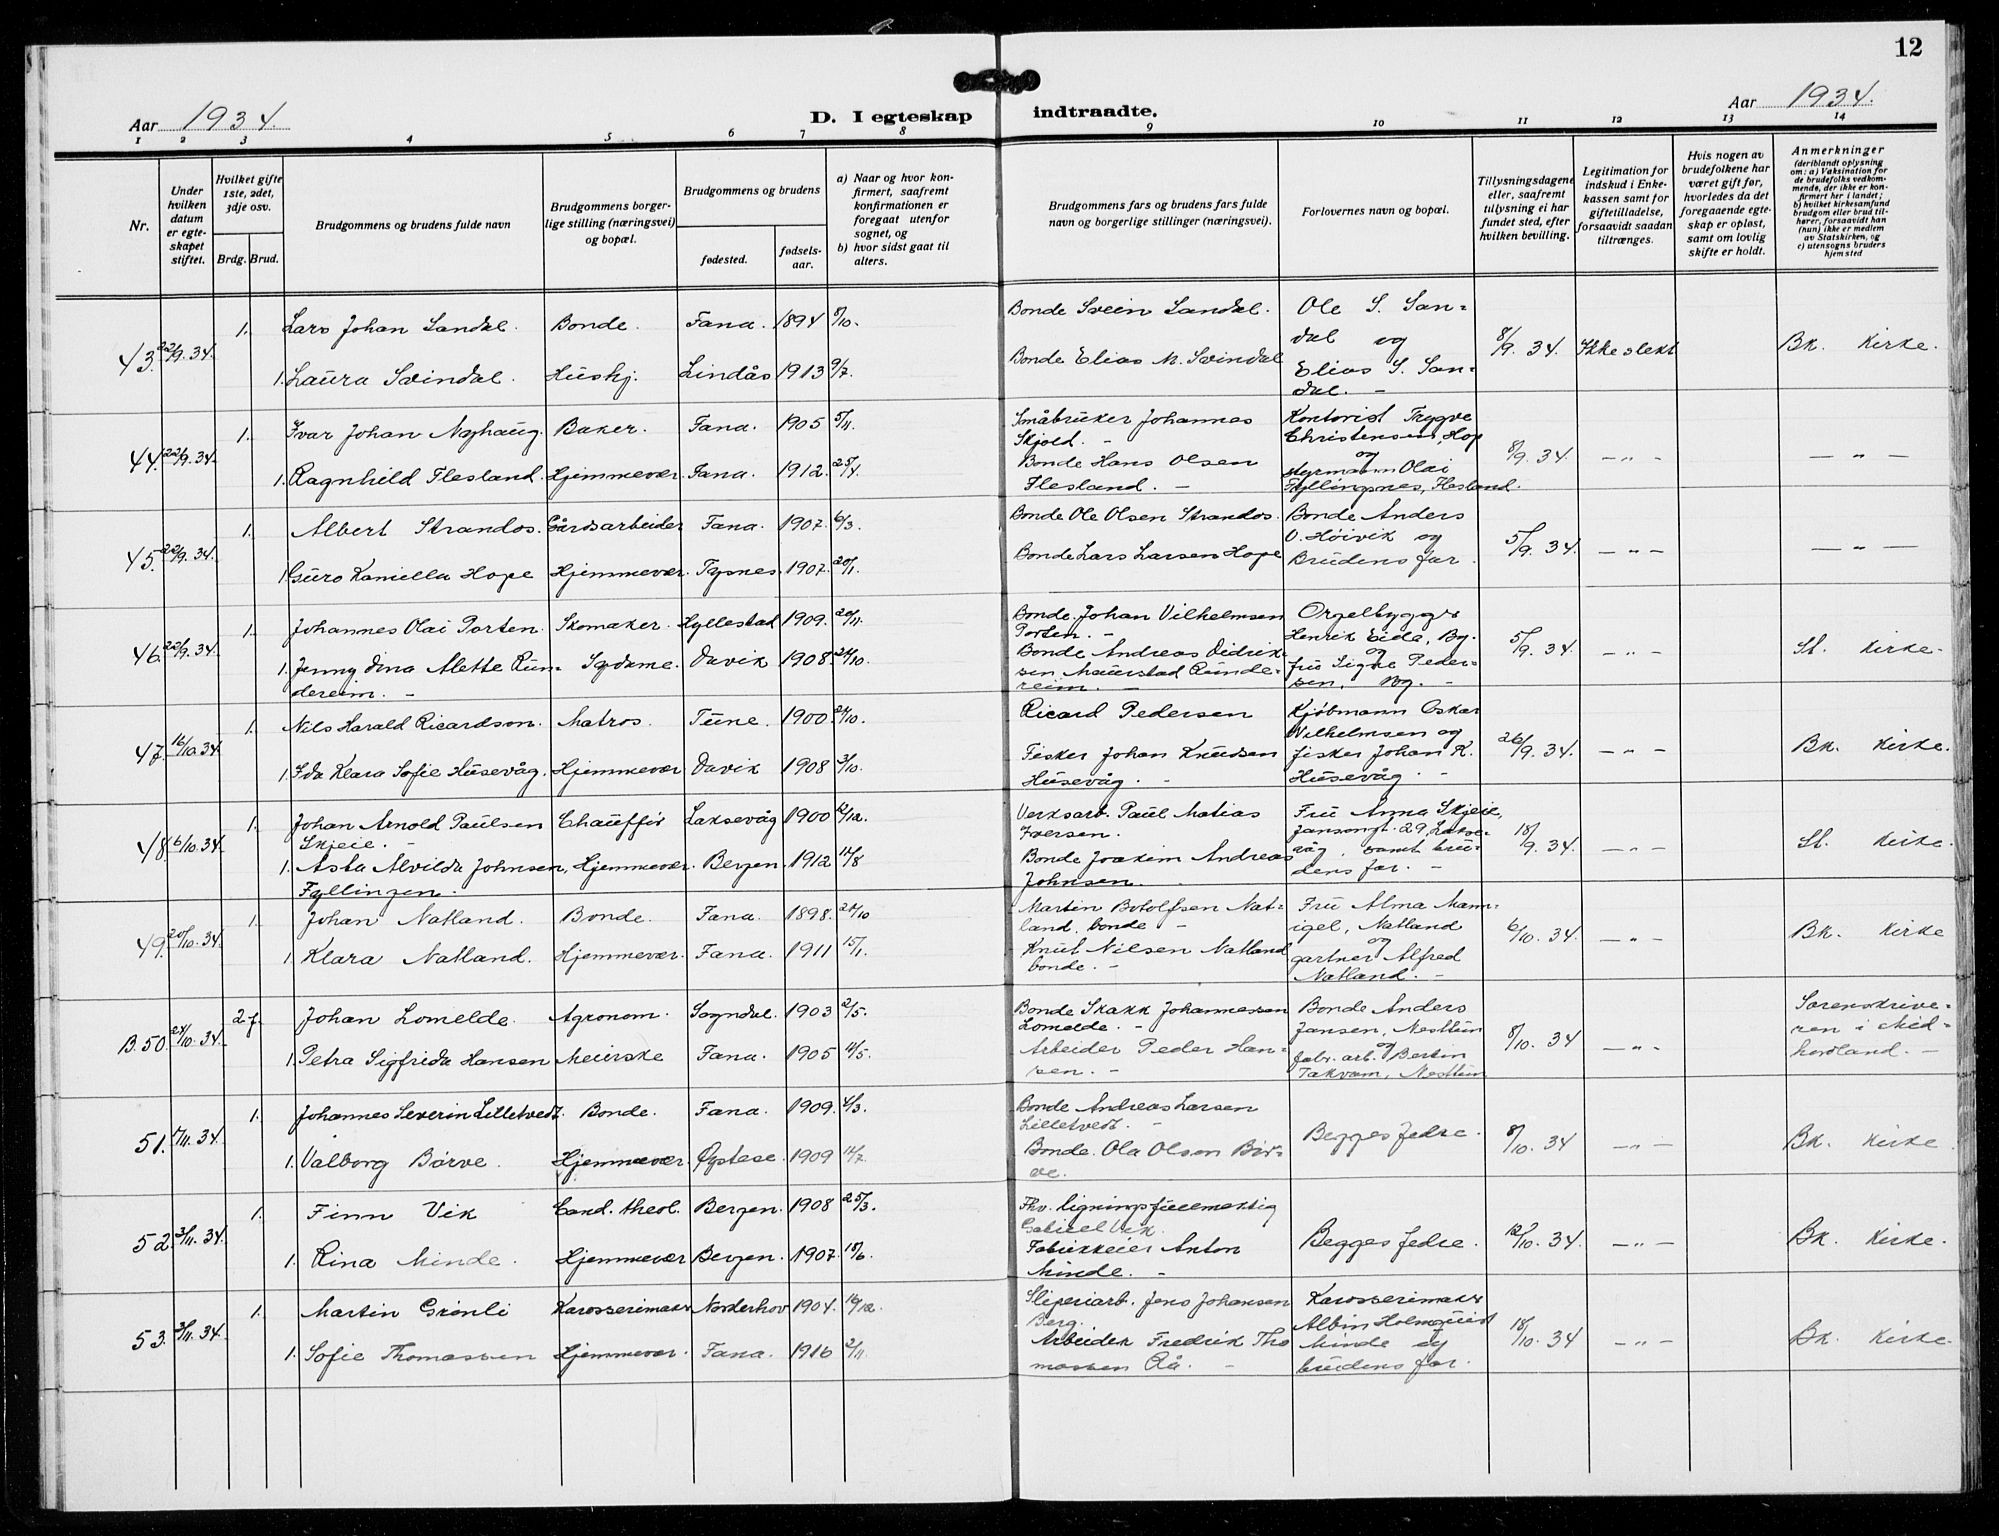 12
Aar 1934.
D. I egteskap indtraadte.
Aar 1934.
1 2 3 4 5 6 7 8 9 10 11 12 13 14
Nr.
Under hvilken datum er egteskapet stiftet.
Hvilket gifte 1ste, 2det, 3dje osv.
Brdg. Brud.
Brudgommens og brudens fulde navn
Brudgommens borgerlige stilling (næringsvei) og bopæl.
Brudgommens og brudens
fødested.
fødselsaar.
a) Naar og hvor konfirmert, saafremt konfirmationen er foregaat utenfor sognet, og
b) hvor sidst gaat til alters.
Brudgommens fars og brudens fars fulde navn og borgerlige stillinger (næringsvei).
Forlovernes navn og bopæl.
Tillysningsdagene eller, saafremt tillysning ei har fundet sted, efter hvilken bevilling.
Legitimation for indskud i Enkekassen samt for giftetilladelse, forsaavidt saadan tiltrænges.
Hvis nogen av brudefolkene har været gift før, hvorledes da det foregaaende egteskap er opløst, samt om lovlig skifte er holdt.
Anmerkninger
(deriblandt oplysning om: a) Vaksination for de brudefolks vedkommende, der ikke er konfirmert her i landet; b) hvilket kirkesamfund brudgom eller brud tilhører, forsaavidt han (hun) ikke er medlem av Statskirken, og c) utensogns bruders hjemsted
43. 22/9.34. 1. Lars Johan Sandal. Bonde. Fana. 1894 8/10. Bonde Svein Sandal. Ole S. Sandal og Elias S. Sandal. - 8/9.34. Ikke slekt Bk. Kirke.
1. Laura Svindal. Hushj. Lindås 1913 9/7. Bonde Elias M. Svindal
44. 22/9.34. 1. Ivar Johan Nøphaug. Baker. Fana. 1905 5/11. Småbruker Johannes Skjold. - Kontorist Trygve Christensen, Hop og styrmann Olai Fyllingsnes, Flesland. 8/9.34. — " — — " —
1. Ragnhild Flesland. Hjemmevær. Fana. 1912. 25/4. Bonde Hans Olsen Flesland. -
45. 22/9.34. 1. Albert Strandos. Gårdsarbeider Fana. 1907. 6/3. Bonde Ole Olsen Strandos. Bonde Anders O. Høivik og Brudens far. 5/9.34. — " — — " —
1. Guro Kamella Hope Hjemmevær. Tysnes. 1907. 20/1. Bonde Lars Larsen Hope
46. 22/9.34. 1. Johannes Olai Porten. Skomaker. Hyllestad 1909. 20/11. Bonde Johan Vilhelmsen Porten. - Orgelbygger Henrik Eide, Bg. og fru Signe Pedersen, Bg. - 5/9.34. — " — St. Kirke.
1. Jenny Dina Alette Rundereim. - Sydame. Davik 1908. 24/10. Bonde Andreas Didriksen Maurstad Rundereim. -
47. 16/10.34. 1. Nils Harald Ricardson. Matros. Tune. 1900. 24/10. Ricard Pedersen Kjøbmann Oskar Wilhelmsen og fisker Johan K. Husevåg. - 26/9.34. — " — Bk. Kirke.
1. Ida Klara Sofie Husevåg. Hjemmevær Davik 1908 3/10. Fisker Johan Knudsen Husevåg. -
48. 6/10.34. 1. Johan Arnold Paulsen Skjeie. - Chauffør Laksevåg 1900 2/12. Verksarb. Paul Matias Iversen. Fru Anna Skjeie, Jansongt. 29, Laksevåg, samt brudens far. - 18/9.34. — " — St. Kirke.
1. Asta Alvilda Johnsen, Fyllingen. Hjemmevær. Bergen. 1912 11/8 Bonde Joakim Andreas Johnsen.
49. 20/10.34. 1. Johan Natland. Bonde. Fana. 1898. 24/10 Martin Botolfsen Natland, bonde - Fru Alma Mannigel, Natland og gartner Alfred Natland. - 6/10.34. — " — Bk. Kirke
1. Klara Natland. Hjemmevær. Fana. 1911 15/1. Knut Nilsen Natland bonde. -
B.50. 24/10.34. 2.f. Johan Lomelde. Agronom. Sogndal. 1903 2/5. Bonde Skakk Johannessen Lomelde. - Bonde Anders Jansen, Nesttun og fabr. arb. Bertin Takvam, Nesttun 8/10.34 — " — Sorenskriveren i Midhordland. -
1. Petra Sigfrida Hansen Meierske Fana. 1905 11/5. Arbeider Peder Hansen. -
51. 1/11.34. 1. Johannes Severin Lilletvedt. Bonde. Fana. 1909. 4/3. Bonde Andreas Larsen Lilletvedt. - Begges fedre. 8/10.34 — " — Bk. Kirke
1. Valborg Børve. Hjemmevær. Øystese. 1909 11/7. Bonde. Ola Olson Børve.
52. 3/11.34. 1. Finn Vik Cand. theol. Bergen. 1908 25/3. Fhv. ligningsfullmektig Gabriel Vik. Begges fedre. 12/10.34. — " — Bk. Kirke.
1. Rina Minde. Hjemmevær Bergen. 1907. 18/6. Fabrikkeier Anton Minde. -
53. 3/11.34. 1. Martin Grønli Karosserimaker Norderhov 1904. 16/12. Sliperiarb. Jens Johansen Berg. Karosserimaker Albin Holmquist Minde og brudens far. 18/10.34 — " — Bk. Kirke.
1. Sofie Thomassen Hjemmevær. Fana. 1916 2/11. Arbeider Fredrik Thomassen Rå. -